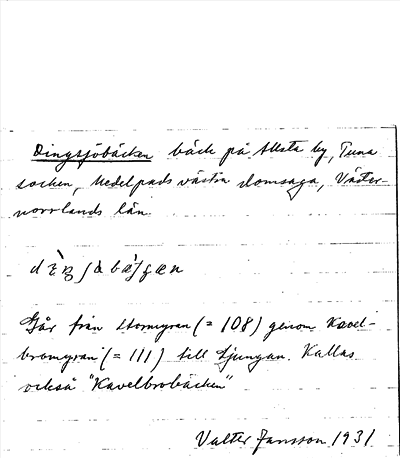 Dingsjöbäcken bäck på Allsta by, Tuna
socken, Medelpads västra domsaga, Väster-
norrlands län.
Går från Stormyran (= 108) genom Kavel-
bromyran (= 111) till Ljungan. Kallas
också "Kavelbrobäcken"
Valter Jansson 1931